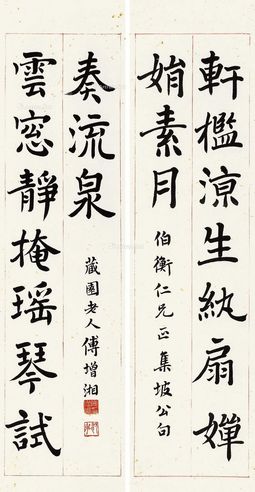 軒檻涼生紈扇嬋
娟素月
伯衡仁兄正集坡公句
雲窓靜掩瑶琴試
奏流泉
藏園老人傅增湘